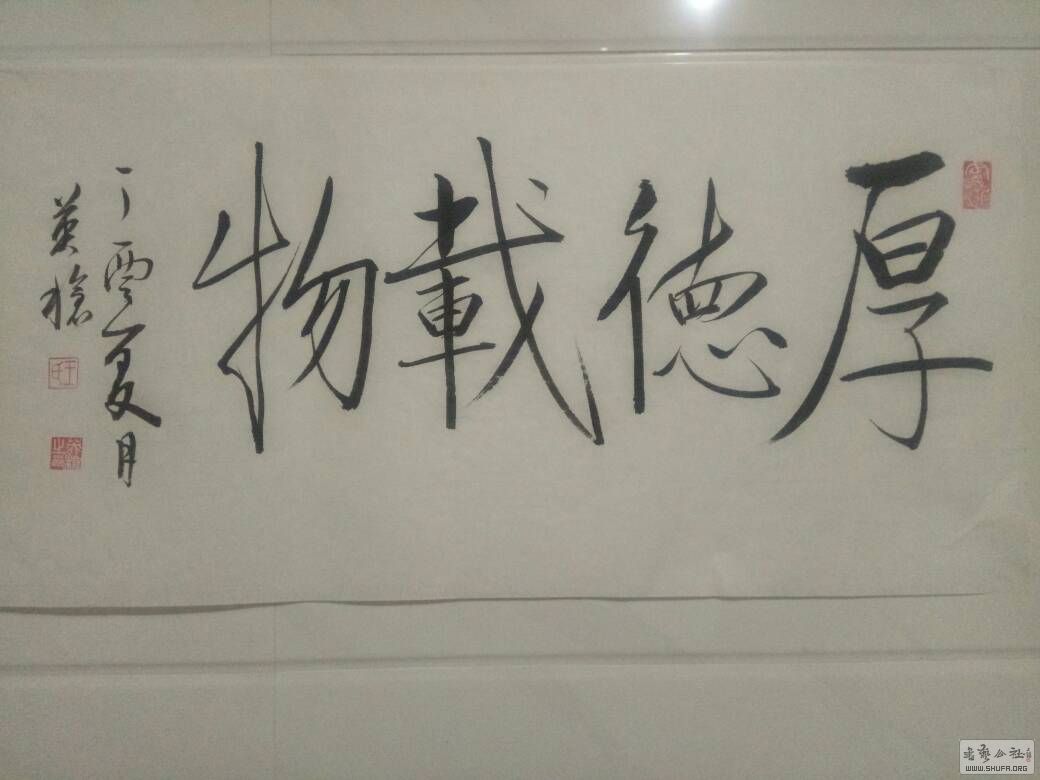 厚德載物
丁酉夏月
英
書藝公社
WWW.SHUFA.ORG